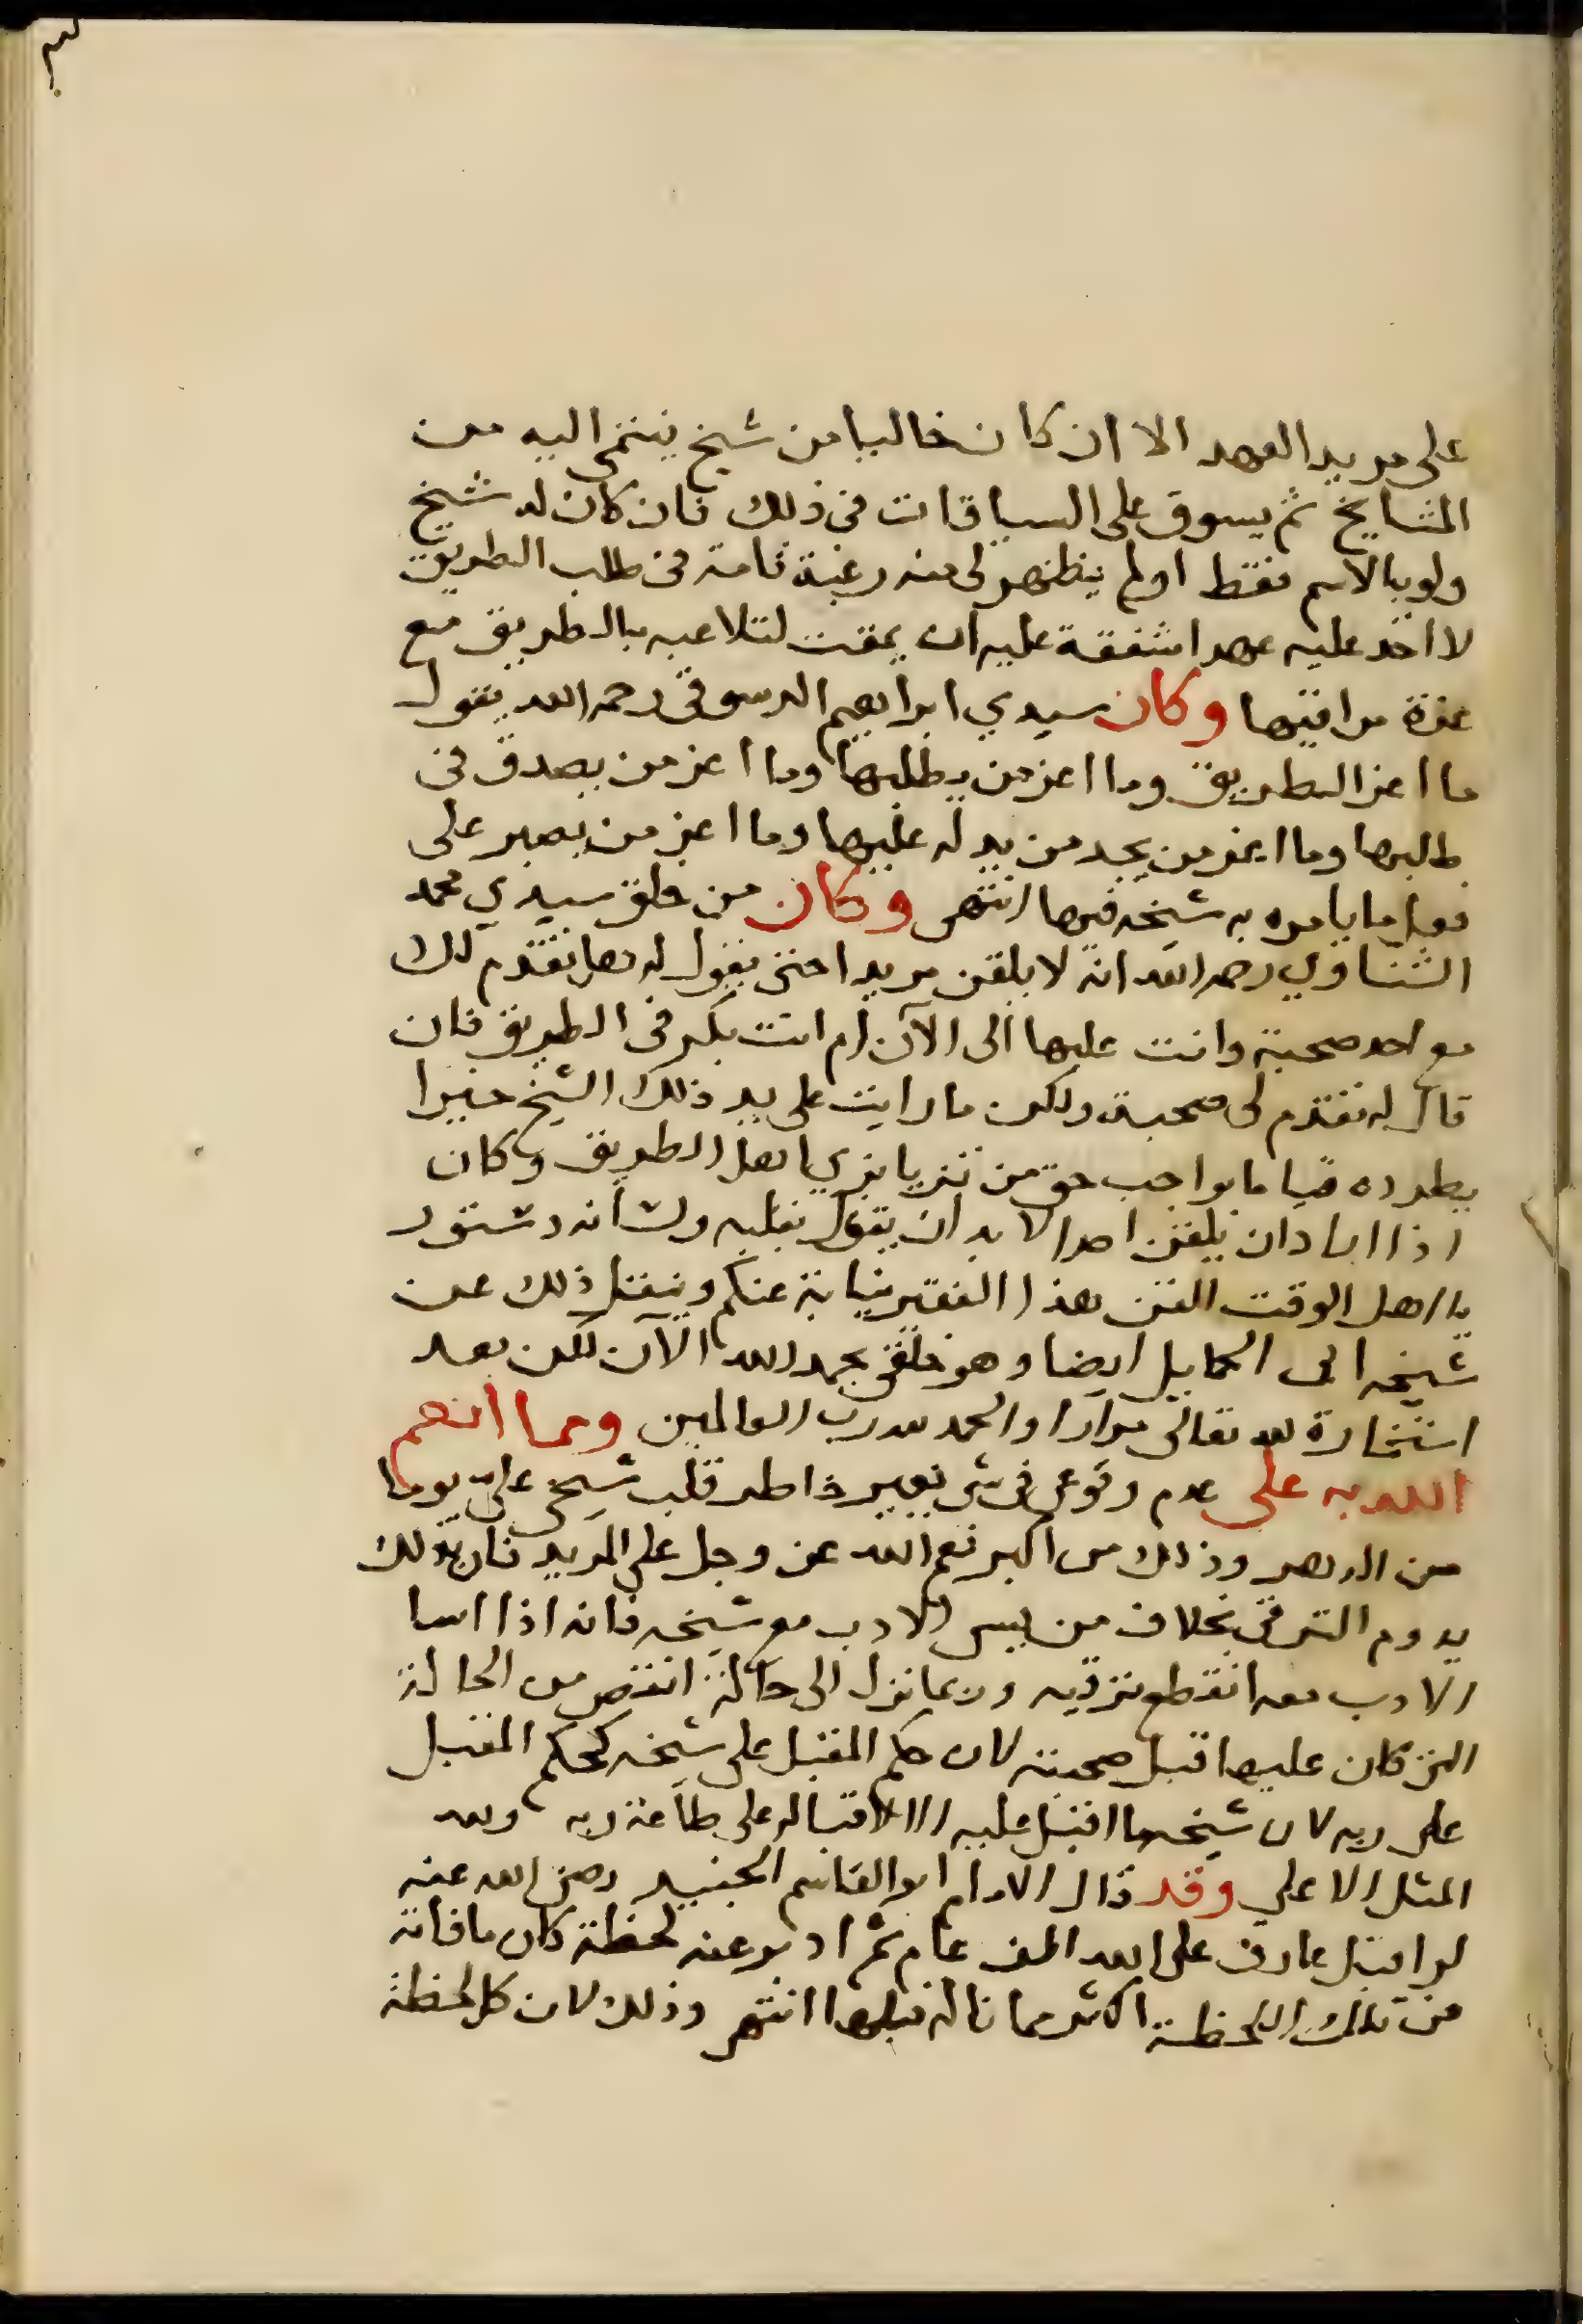 على مريد العهد الا ان كان خاليا من شيخ ينتمى اليه من
المشايخ ثم يسوق على السياقات فى ذلك فان كان له شيخ
ولو بالاسم فقط او لم يظهر لى منه رغبة تامة فى طلب الطريق
لا اخذ عليه عهدا شفقة عليه ان يمقت لتلاعبه بالطريق مع
عزة مراقيها وكان سيدي ابراهيم الدسوقى رحمه الله يقول
ما اعز الطريق وما اعز من يطلبها وما اعز من يصدق فى
طلبها وما اعز من يجد من يدله عليها وما اعز من يصبر على
فعل ما يامره به شيخه فيها انتهى وكان من خلق سيدي محمد
الشناوي رحمه الله انه لا يلقن مريدا حتى يقول له هل تقدم لك
مع احد صحبة وانت عليها الى الآن ام انت بكر فى الطريق فان
قال له تقدم لى صحبة ولكن ما رايت على يد ذلك الشيخ خيرا
يطرده قياما بواجب حق من تزيا بزي اهل الطريق وكان
اذا اراد ان يلقن احدا لا بد ان يقول بقلبه ولسانه دستور
يا اهل الوقت القن هذا الفقير نيابة عنكم وينقل ذلك عن
شيخه ابى الحمايل ايضا وهو خلقى بحمد الله الآن لكن بعد
استخارة لله تعالى مرارا والحمد لله رب العالمين ومما انعم
الله به على عدم وقوعى فى شى يغير خاطر قلب شيخى على يوما
من الدهر وذلك من اكبر نعم الله عز وجل على المريد فان بذلك
يدوم الترقى بخلاف من يسى الادب مع شيخه فانه اذا اسا
الادب معه انقطع ترقيه وربما نزل الى حالة انقص من الحالة
التى كان عليها قبل صحبته لان حكم المقبل على شيخه كحكم المقبل
على ربه لان شيخه ما اقبل عليه الا لاقباله على طاعة ربه ولله
المثل الاعلى وقد قال الامام ابو القاسم الجنيد رضى الله عنه
لو اقبل عارف على الله الف عام ثم ادبر عنه لحظة كان ما فاته
من تلك اللحظة اكثر مما ناله قبلها انتهى وذلك لان كل لحظة